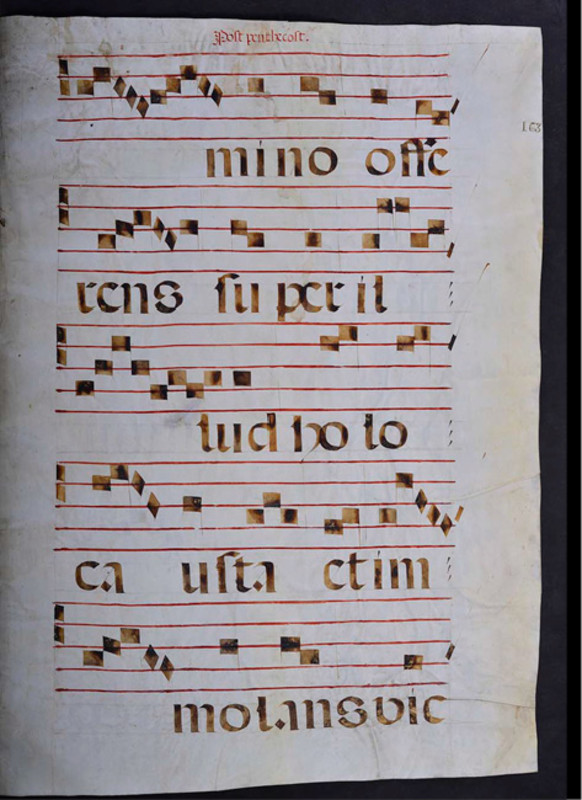 Post penthecost.
168
mino offe
rens super il
lud holo
ca usta et im
molans vic